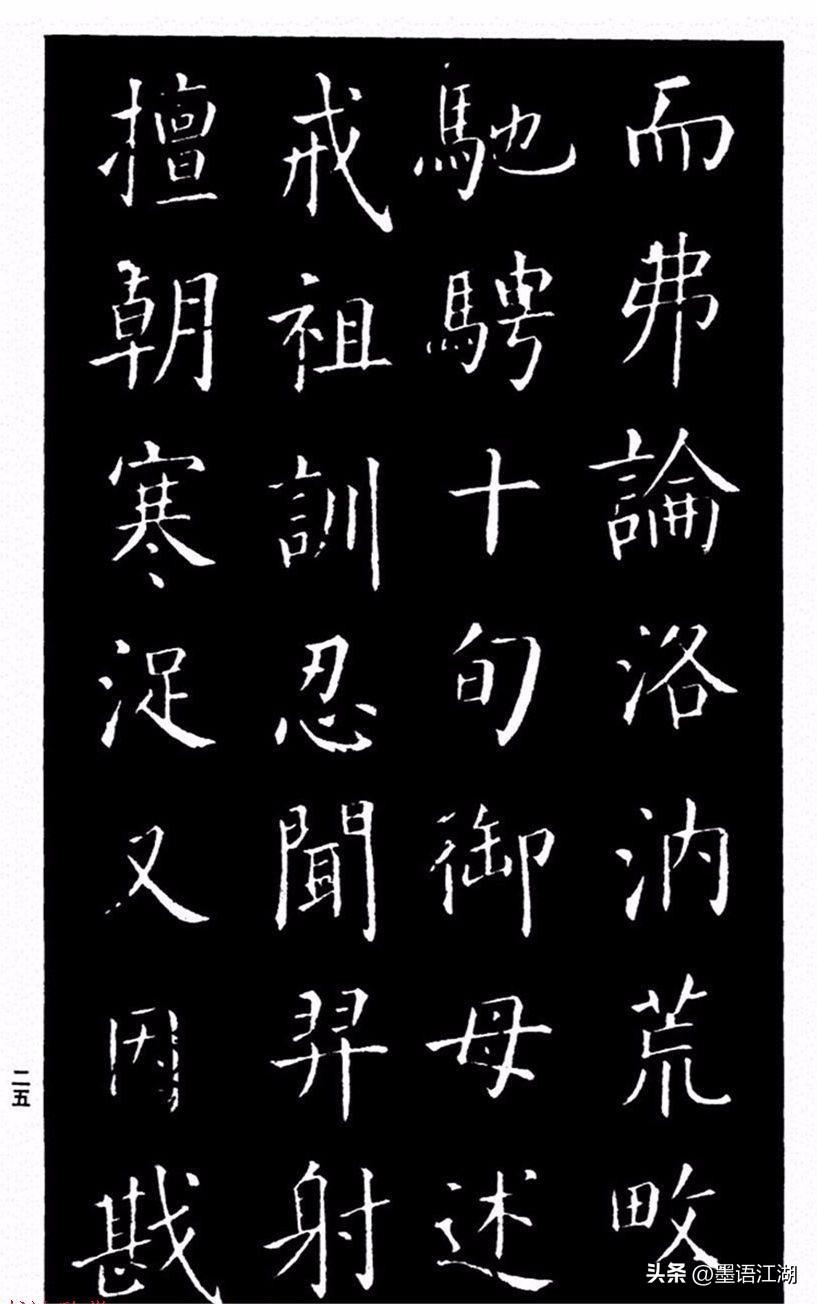 而弗論洛汭荒畋
馳騁十旬御母述
戒祖訓忍聞羿射
擅朝寒浞又因戡
二五
头条 @墨语江湖